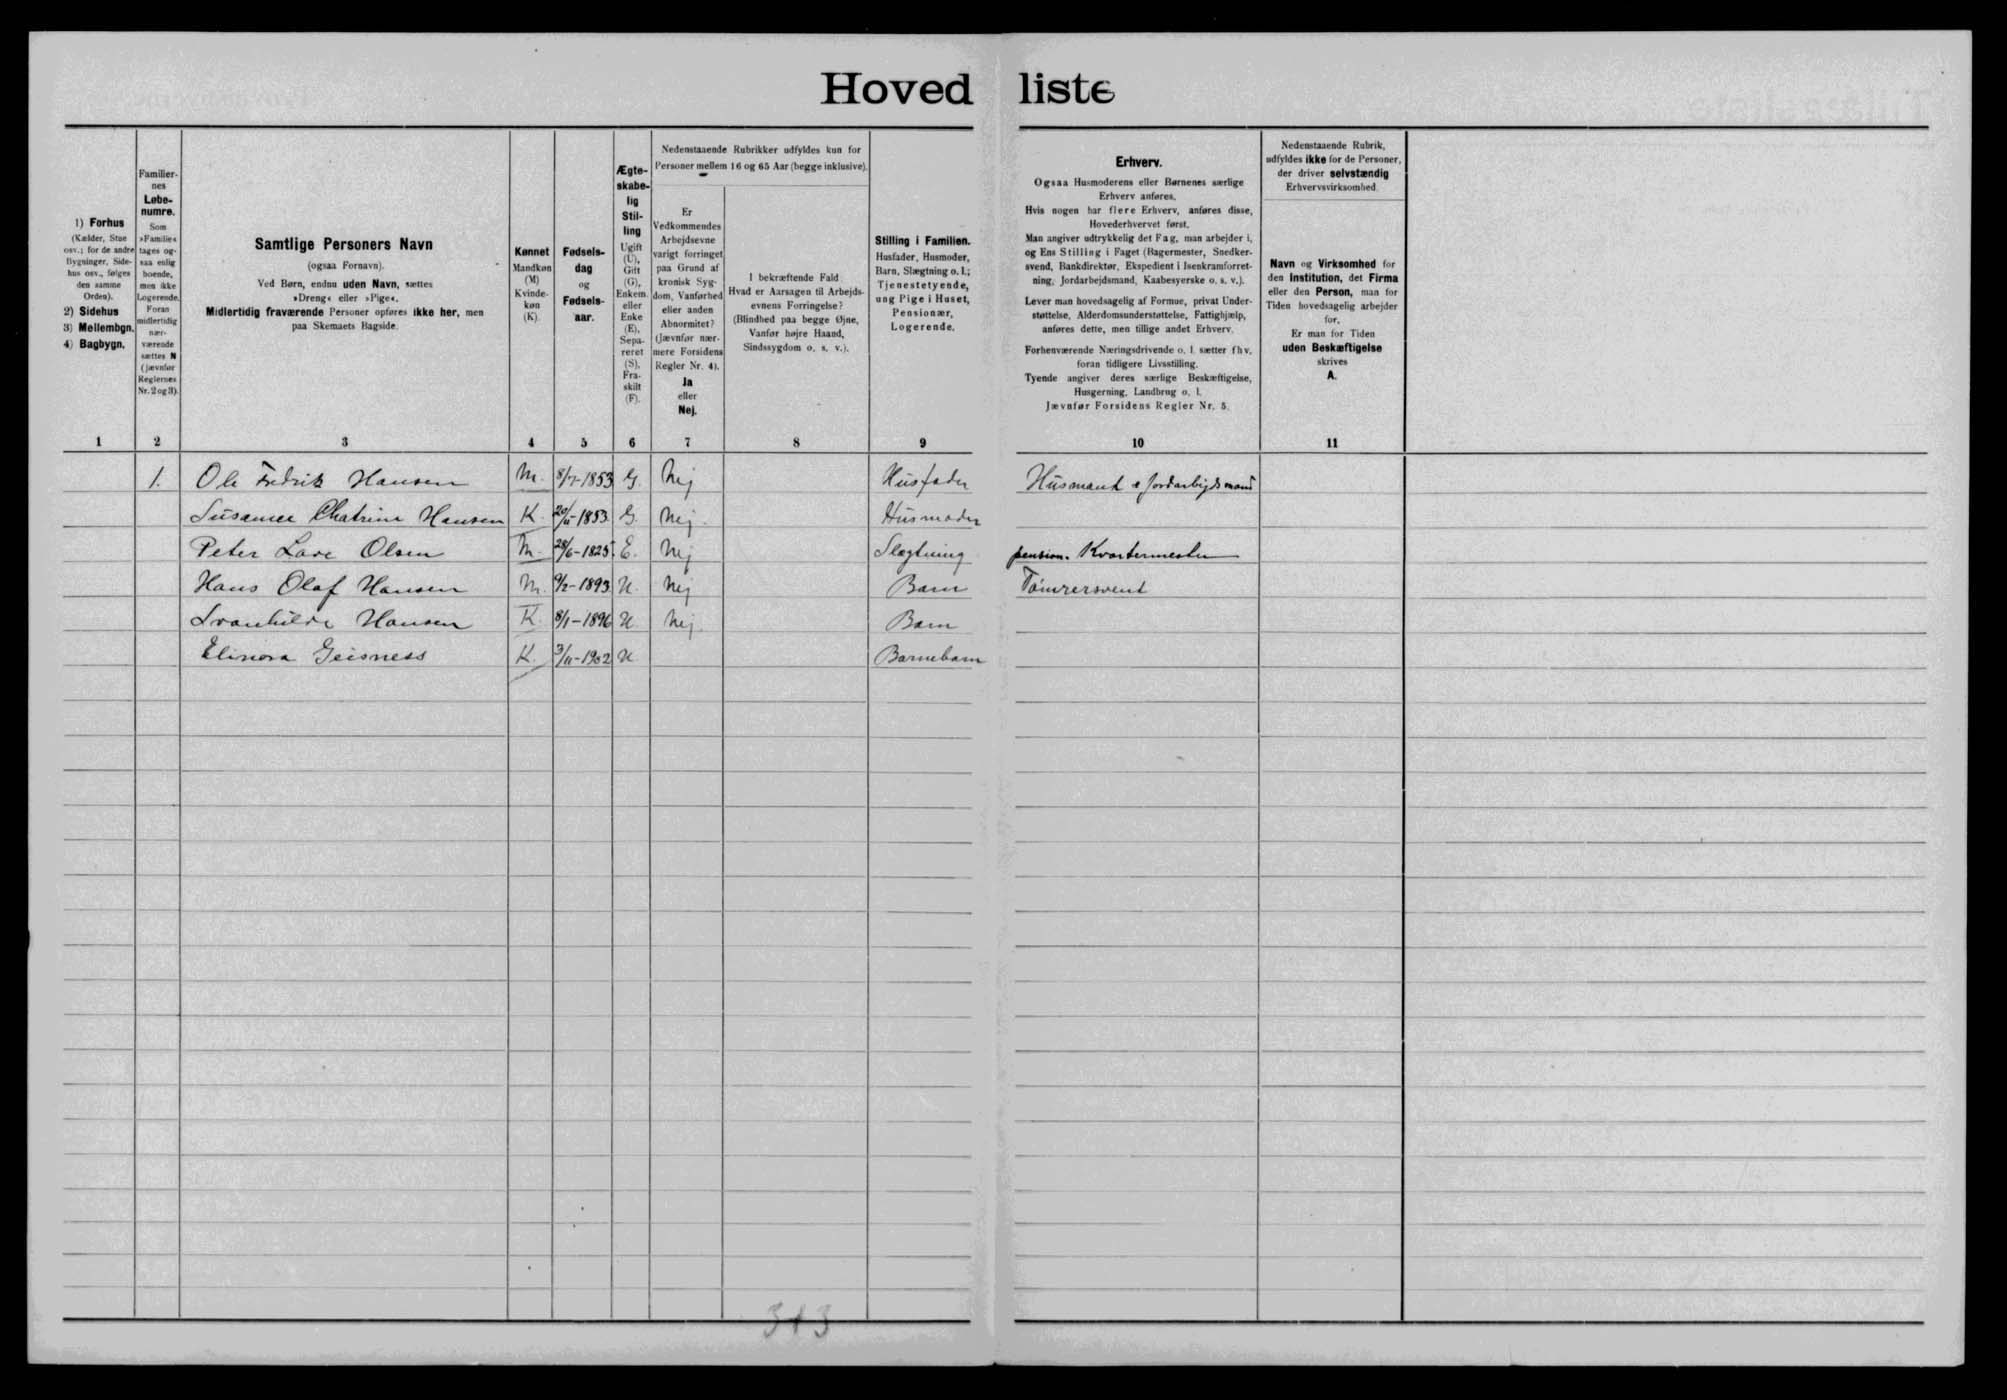 Hovedliste
1) Forhus
(Kælder, Stue
osv.; for de andre
Bygninger, Side-
hus osv., følges
den samme
Orden).
2) Sidehus
3) Mellembgn.
4) Bagbygn.
Familier-
nes
Løbe-
numre.
Som
»Familie«
tages og-
saa enlig
boende,
men ikke
Logerende.
Foran
midlertidig
nær-
værende
sættes N
(jævnfør
Reglernes
Nr. 2 og 3).
Samtlige Personers Navn
(ogsaa Fornavn).
Ved Børn, endnu uden Navn, sættes
»Dreng« eller »Pige«.
Midlertidig fraværende Personer opføres ikke her, men
paa Skemaets Bagside.
Kønnet
Mandkøn
(M)
Kvinde-
køn
(K).
Fødsels-
dag
og
Fødsels-
aar.
Ægte-
skabe-
lig
Stil-
ling
Ugift
(U),
Gift
(G),
Enkem.
eller
Enke
(E),
Sepa-
reret
(S),
Fra-
skilt
(F).
Nedenstaaende Rubrikker udfyldes kun for
Personer mellem 16 og 65 Aar (begge inklusive).
Er
Vedkommendes
Arbejdsevne
varigt forringet
paa Grund af
kronisk Syg-
dom, Vanførhed
eller anden
Abnormitet?
(Jævnfør nær-
mere Forsidens
Regler Nr. 4).
Ja
eller
Nej.
I bekræftende Fald
Hvad er Aarsagen til Arbejds-
evnens Forringelse?
(Blindhed paa begge Øjne,
Vanfør højre Haand,
Sindssygdom o. s. v.).
Stilling i Familien.
Husfader, Husmoder,
Barn, Slægtning o. l.;
Tjenestetyende,
ung Pige i Huset,
Pensionær,
Logerende.
Erhverv.
Ogsaa Husmoderens eller Børnenes særlige
Erhverv anføres.
Hvis nogen har flere Erhverv, anføres disse,
Hovederhvervet først.
Man angiver udtrykkelig det Fag, man arbejder i,
og Ens Stilling i Faget (Bagermester, Snedker-
svend, Bankdirektør, Ekspedient i Isenkramforret-
ning, Jordarbejdsmand, Kaabesyerske o. s. v.).
Lever man hovedsagelig af Formue, privat Under-
støttelse, Alderdomsunderstøttelse, Fattighjælp,
anføres dette, men tillige andet Erhverv.
Forhenværende Næringsdrivende o. l. sætter fhv.
foran tidligere Livsstilling.
Tyende angiver deres særlige Beskæftigelse,
Husgerning, Landbrug o. l.
Jævnfør Forsidens Regler Nr. 5.
Nedenstaaende Rubrik,
udfyldes ikke for de Personer,
der driver selvstændig
Erhvervsvirksomhed.
Navn og Virksomhed for
den Institution, det Firma
eller den Person, man for
Tiden hovedsagelig arbejder
for.
Er man for Tiden
uden Beskæftigelse
skrives
A.
1 2 3 4 5 6 7 8 9 10 11
1. Ole Fredrik Hansen M. 8/7-1853 G. Nej Husfader Husmand & Jordarbejdsmand
Susanne Chatrine Hansen K. 20/11-1853 G. Nej. Husmoder
Peter Lave Olsen M. 28/6-1825 E. Nej Slægtning pension. Kvartermester
Hans Olaf Hansen M. 9/2-1893 U. Nej Barn Tømrersvent
Svanhilde Hansen K. 8/1-1896 U. Nej. Barn
Elinora Geisness K. 3/11-1902 U. Barnebarn
3+3